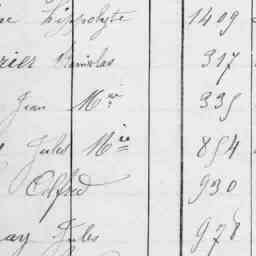 Hippolyte 1409
rier Nicolas 317
Jean Mce 335
Jules Mie 854
Alfred 930
ay Jules 978